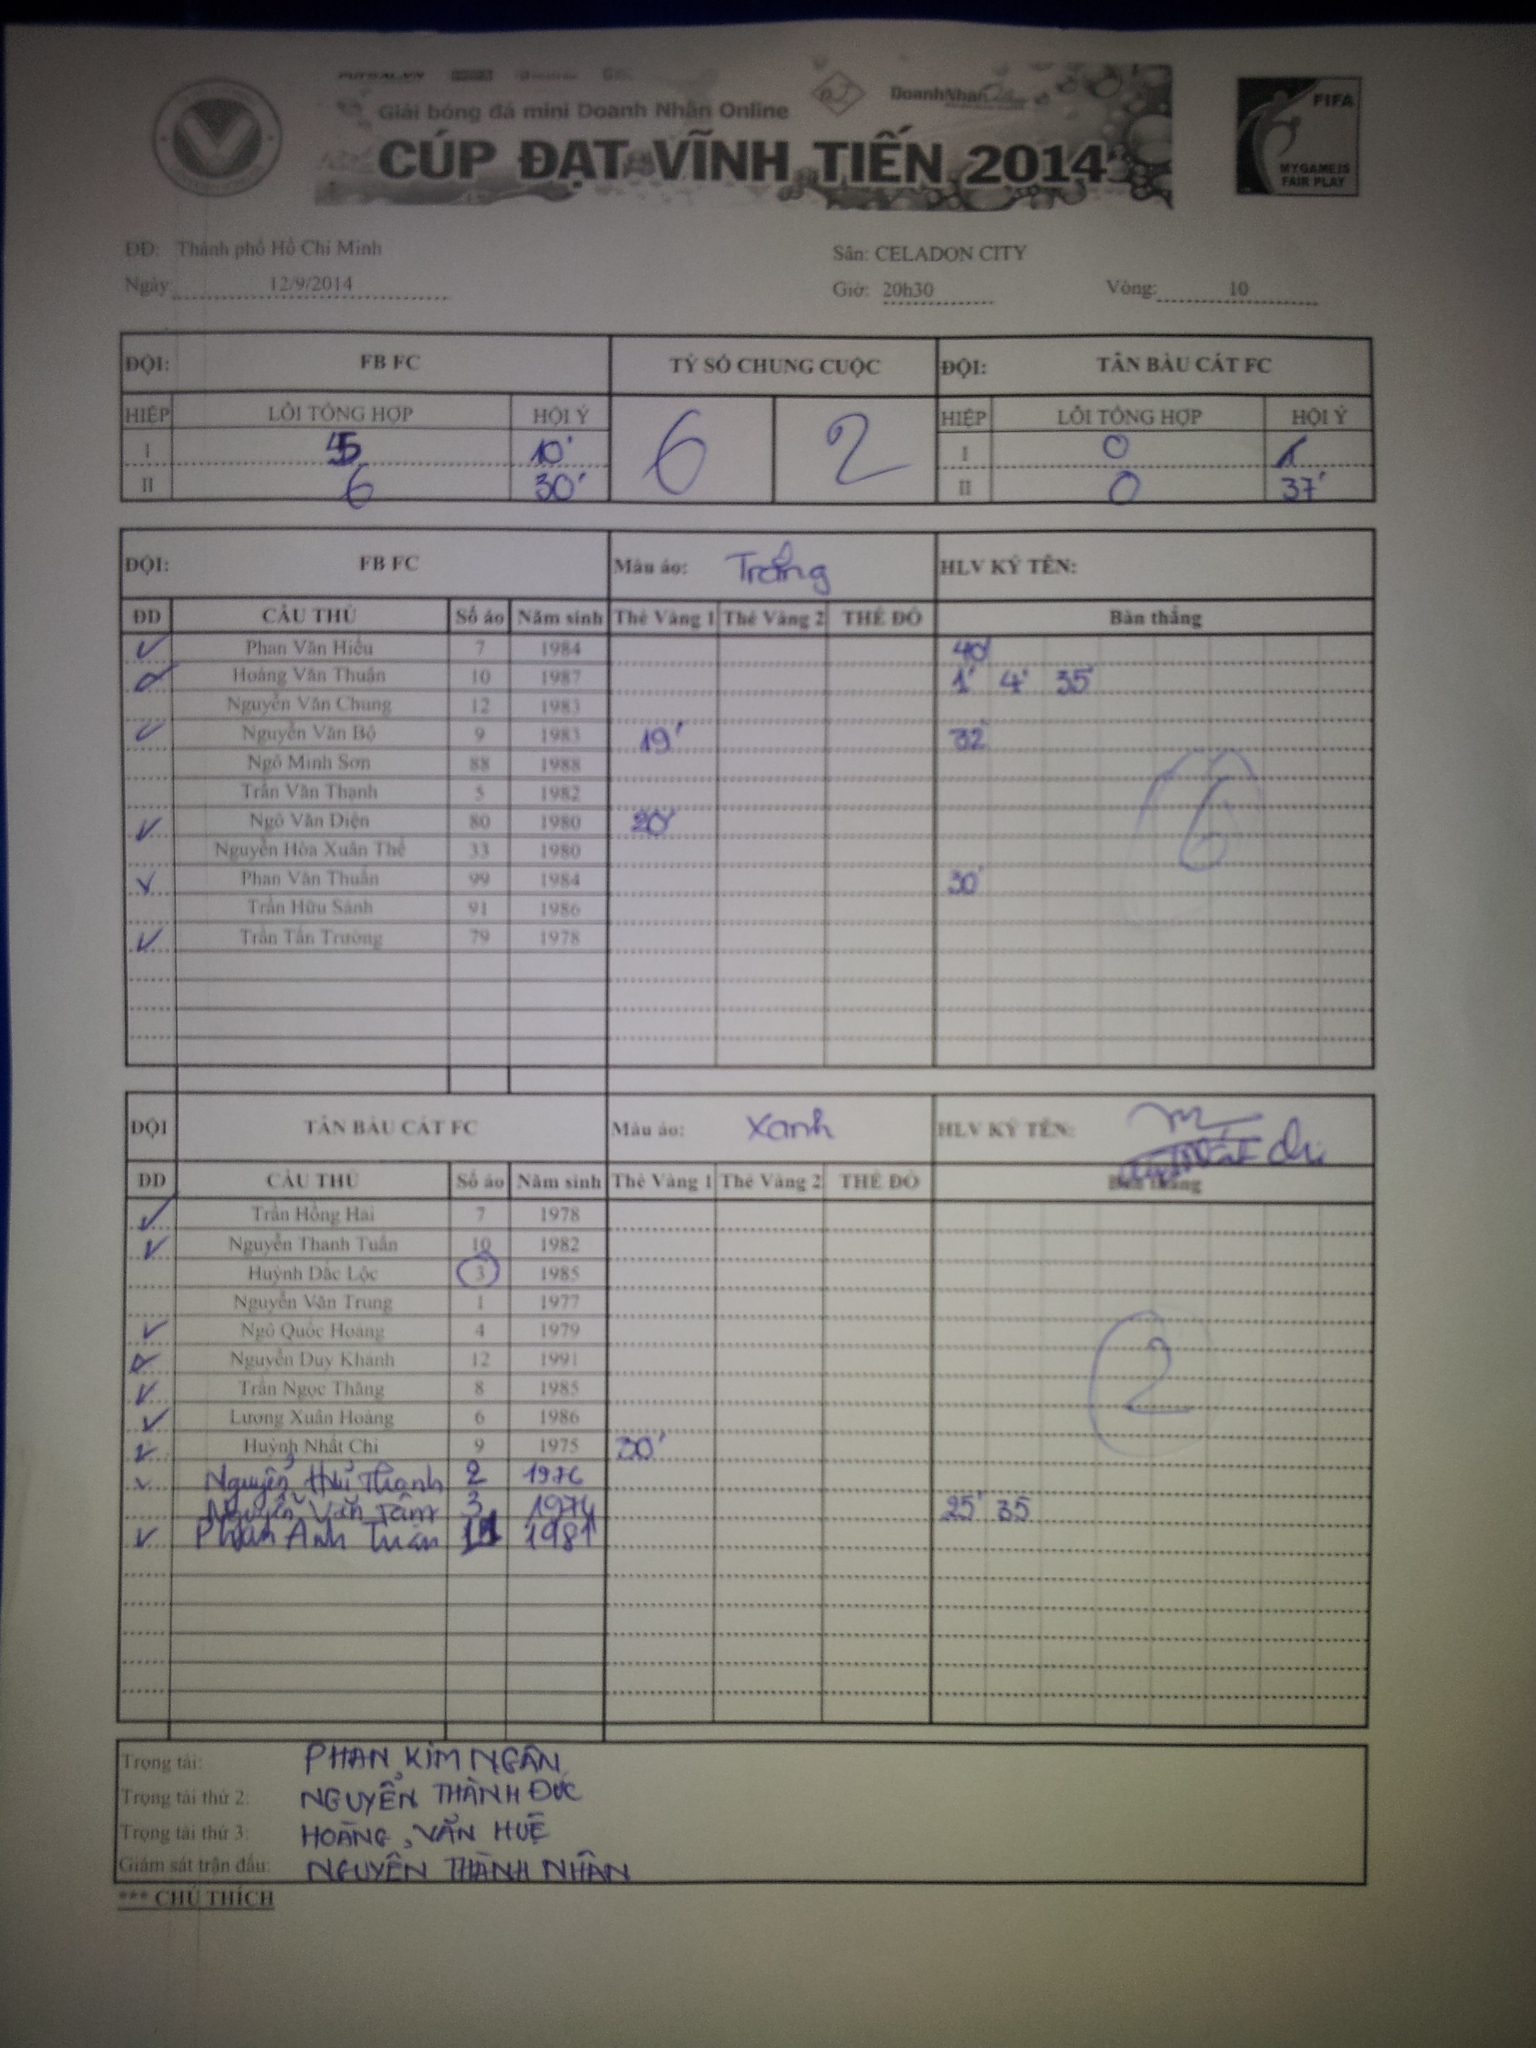 Giải bóng đá mini Doanh Nhân Online
CÚP ĐẠT VĨNH TIẾN 2014
FIFA
MY GAME IS
FAIR PLAY
ĐĐ: Thành phố Hồ Chí Minh Sân: CELADON CITY
Ngày 12/9/2014 Giờ: 20h30 Vòng: 10
ĐỘI: FB FC TỶ SỐ CHUNG CUỘC ĐỘI: TÂN BÀU CÁT FC
HIỆP LỖI TỔNG HỢP HỘI Ý 6 2 HIỆP LỖI TỔNG HỢP HỘI Ý
I 5 10' I 0
II 6 30' II 0 37'
ĐỘI: FB FC Màu áo: Trắng HLV KÝ TÊN:
ĐD CẦU THỦ Số áo Năm sinh Thẻ Vàng 1 Thẻ Vàng 2 THẺ ĐỎ Bàn thắng
Phan Văn Hiếu 7 1984 40'
Hoàng Văn Thuận 10 1987 1' 4' 35'
Nguyễn Văn Chung 12 1983
Nguyễn Văn Bộ 9 1983 19' 32'
Ngô Minh Sơn 88 1988
Trần Văn Thạnh 5 1982
Ngô Văn Diện 80 1980 20'
Nguyễn Hòa Xuân Thể 33 1980
Phan Văn Thuẩn 99 1984 30'
Trần Hữu Sánh 91 1986
Trần Tấn Trường 79 1978
6
ĐỘI TÂN BÀU CÁT FC Màu áo: Xanh HLV KÝ TÊN:
DD CẦU THỦ Số áo Năm sinh Thẻ Vàng 1 Thẻ Vàng 2 THẺ ĐỎ Bàn thắng
Trần Hồng Hai 7 1978
Nguyễn Thanh Tuấn 10 1982
Huỳnh Dắc Lộc 3 1985
Nguyễn Văn Trung 1 1977
Ngô Quốc Hoàng 4 1979
Nguyễn Duy Khánh 12 1991
Trần Ngọc Thăng 8 1985
Lương Xuân Hoàng 6 1986
Huỳnh Nhất Chi 9 1975 30'
Nguyễn Thạnh 2 1976
Nguyễn Văn Tâm 3 1974 25' 35
Phan Anh Tuấn 1981
2
Trọng tài: PHAN KIM NGÂN
Trọng tài thứ 2: NGUYỄN THÀNH ĐỨC
Trọng tài thứ 3: HOÀNG VĂN HUỆ
Giám sát trận đấu: NGUYỄN THÀNH NHÂN
*** CHÚ THÍCH